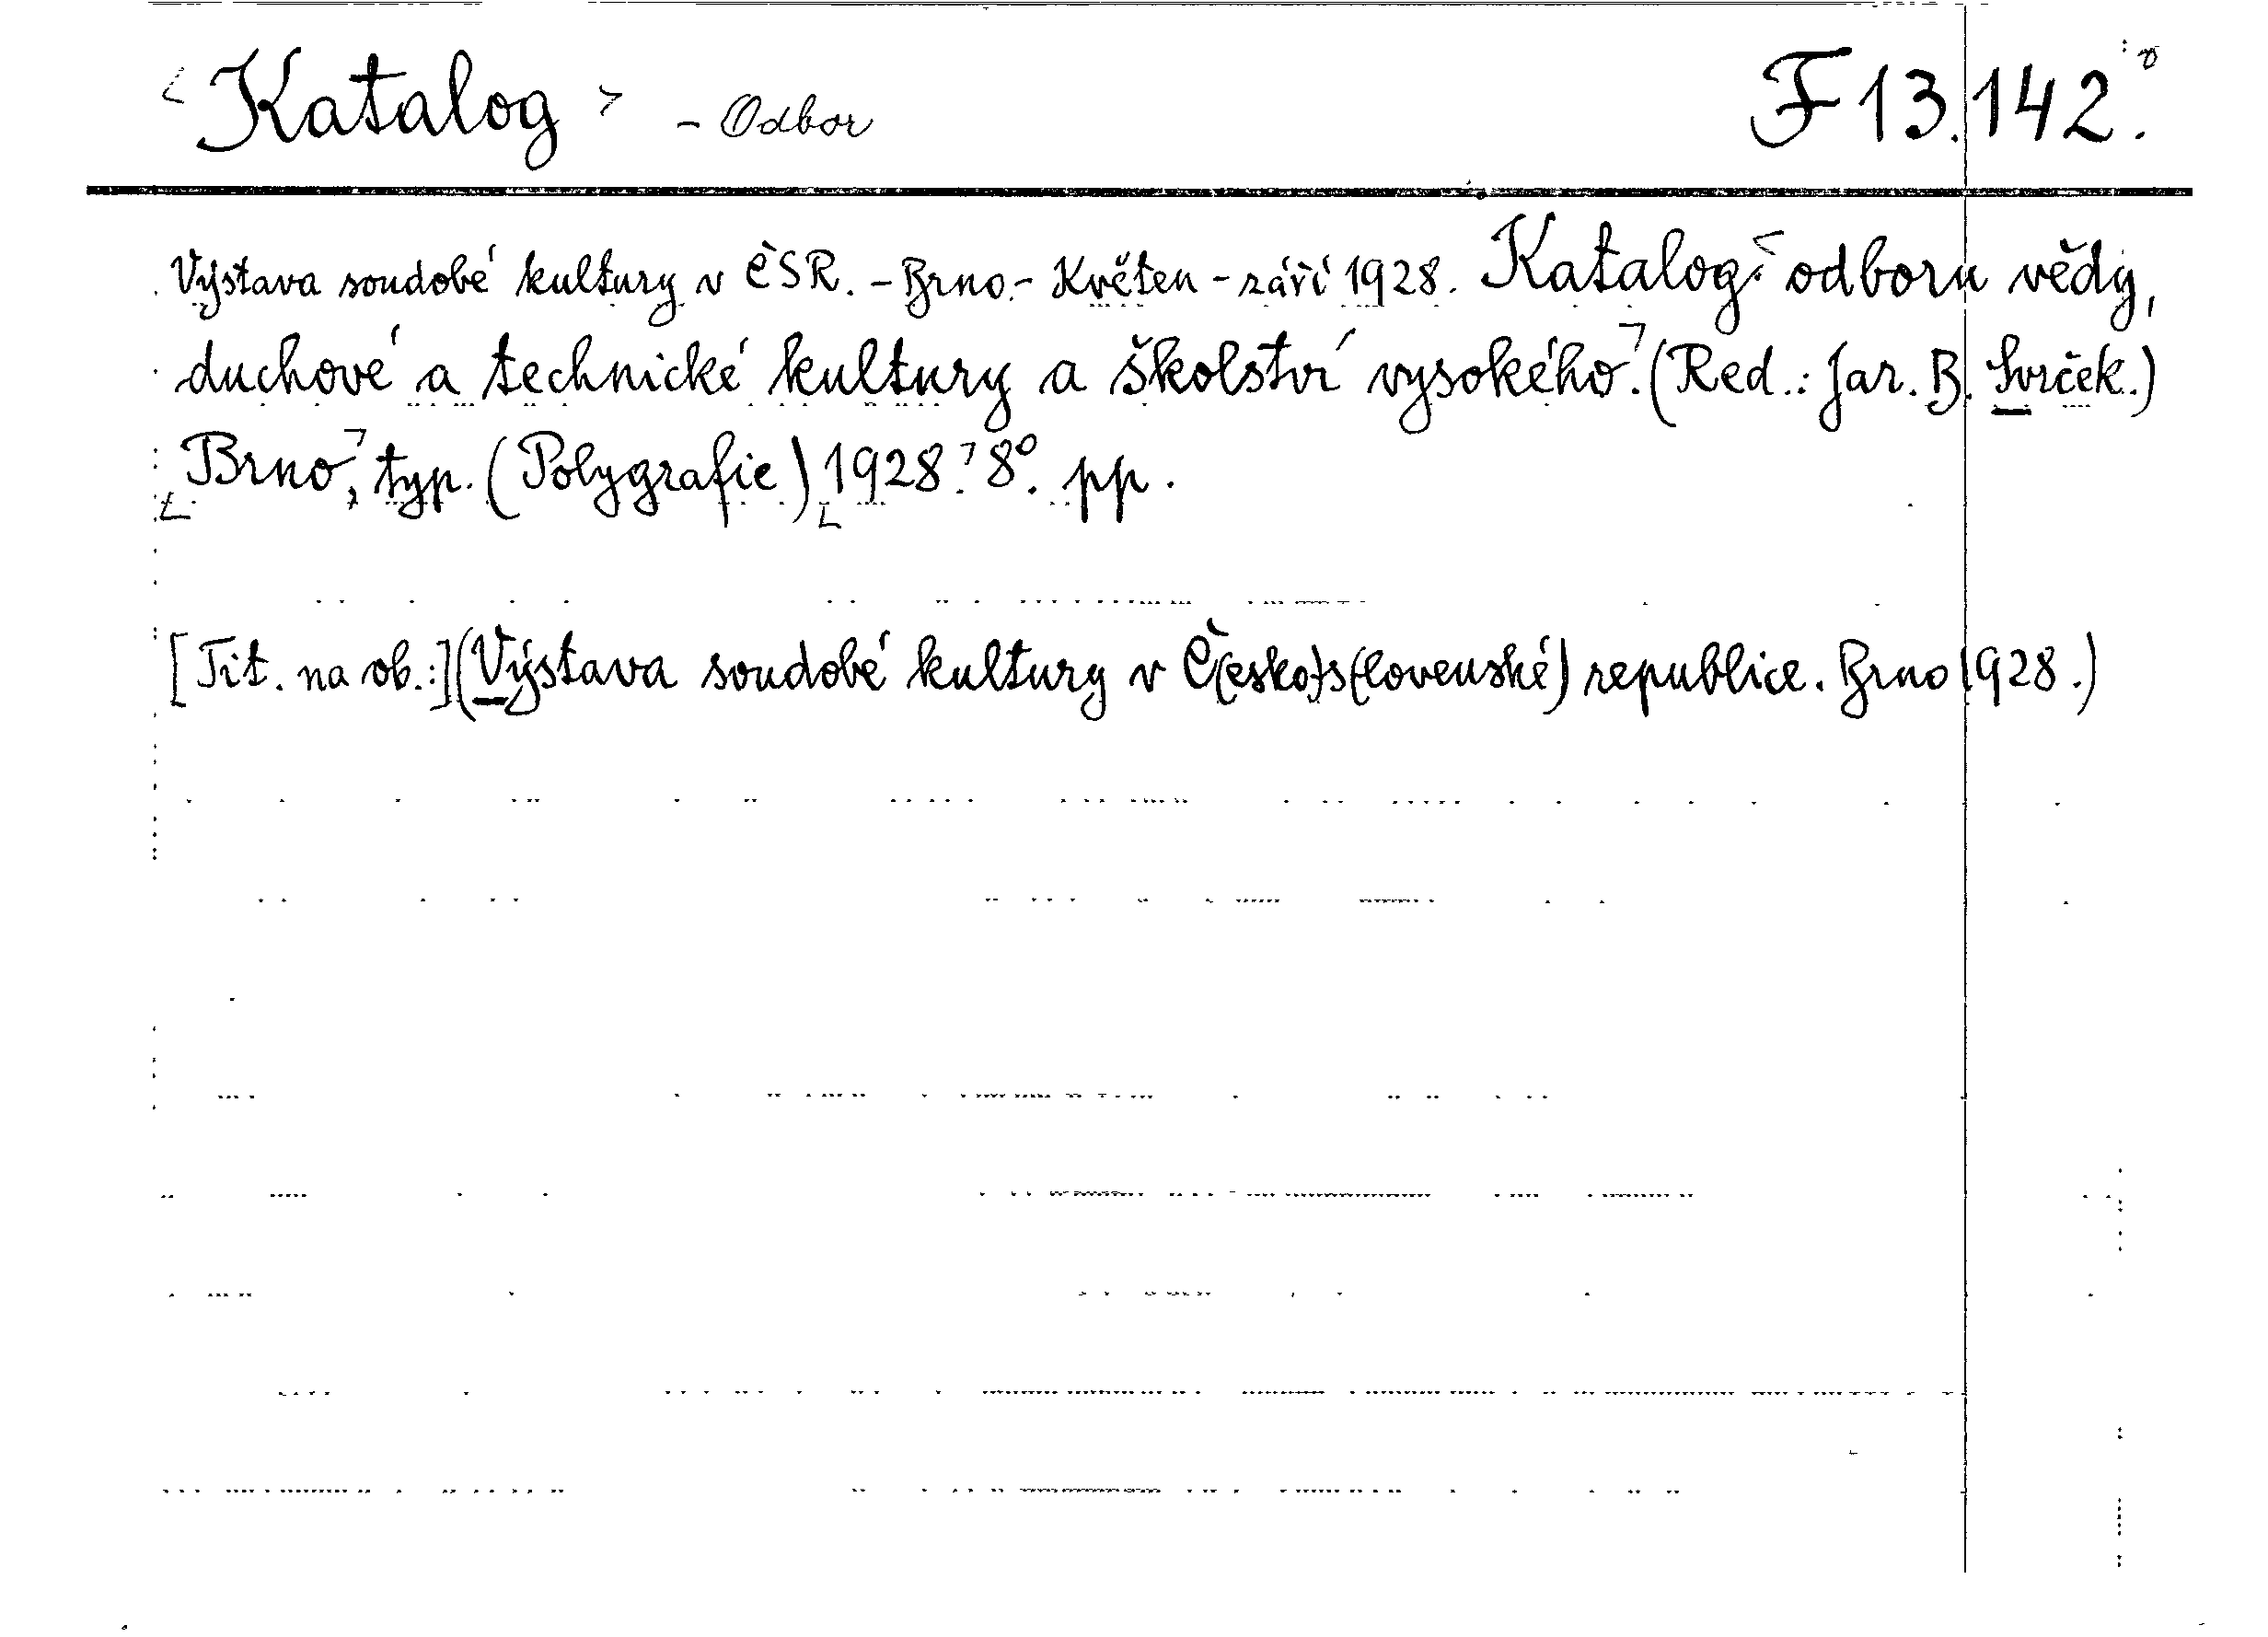 < Katalog > - Odbor F 13.142.
Výstava soudobé kultury v ČSR. - Brno. - Květen - září 1928. Katalog < odboru vědy,
duchové a technické kultury a školství vysokého. (Red.: Jar. B. Svrček.)
Brno, typ. (Polygrafie) 1928. 8°. pp.
[Tit. na ob.:] (Výstava soudobé kultury v Č(esko)s(lovenské) republice. Brno 1928.)